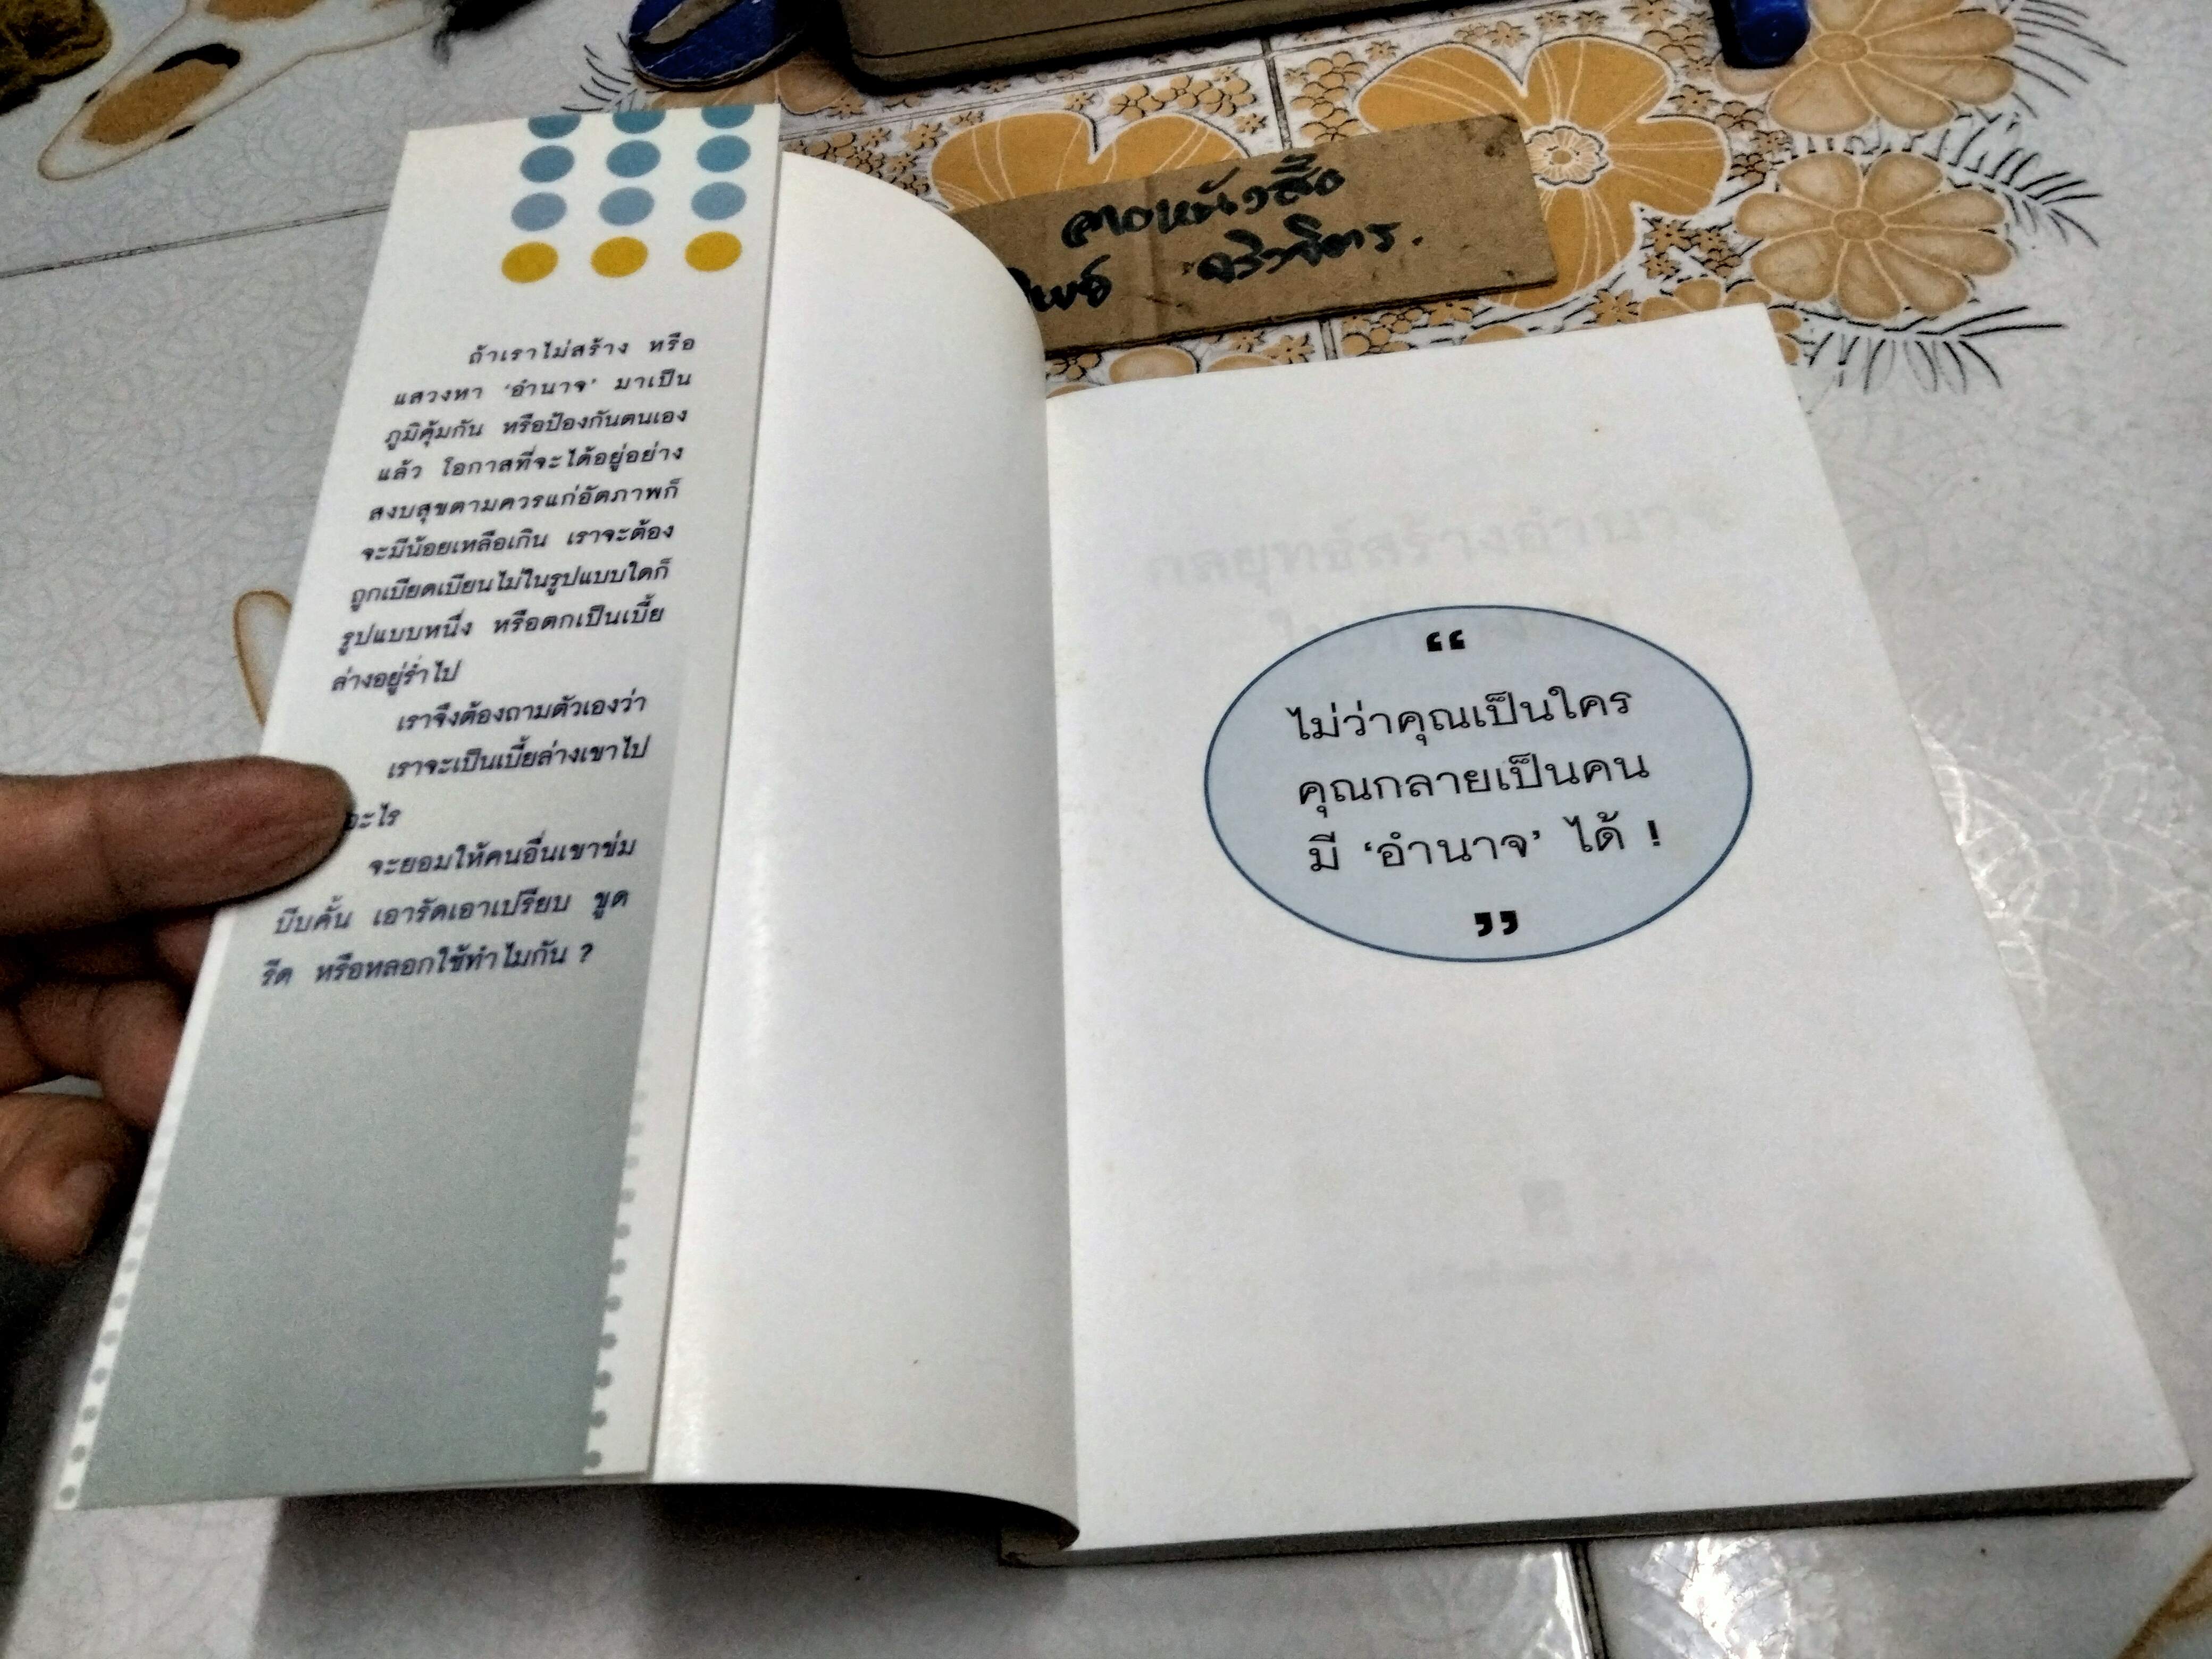 ถ้าเราไม่สร้าง หรือ
แสวงหา ‘อำนาจ’ มาเป็น
ภูมิคุ้มกัน หรือป้องกันตนเอง
แล้ว โอกาสที่จะได้อยู่อย่าง
สงบสุขตามควรแก่อัตภาพก็
จะมีน้อยเหลือเกิน เราจะต้อง
ถูกเบียดเบียนไม่ในรูปแบบใดก็
รูปแบบหนึ่ง หรือตกเป็นเบี้ย
ล่างอยู่ร่ำไป
เราจึงต้องถามตัวเองว่า
เราจะเป็นเบี้ยล่างเขาไป
อะไร
จะยอมให้คนอื่นเขาข่ม
บีบคั้น เอารัดเอาเปรียบ ขูด
รีด หรือหลอกใช้ทำไมกัน ?
“
ไม่ว่าคุณเป็นใคร
คุณกลายเป็นคน
มี ‘อำนาจ’ ได้ !
”